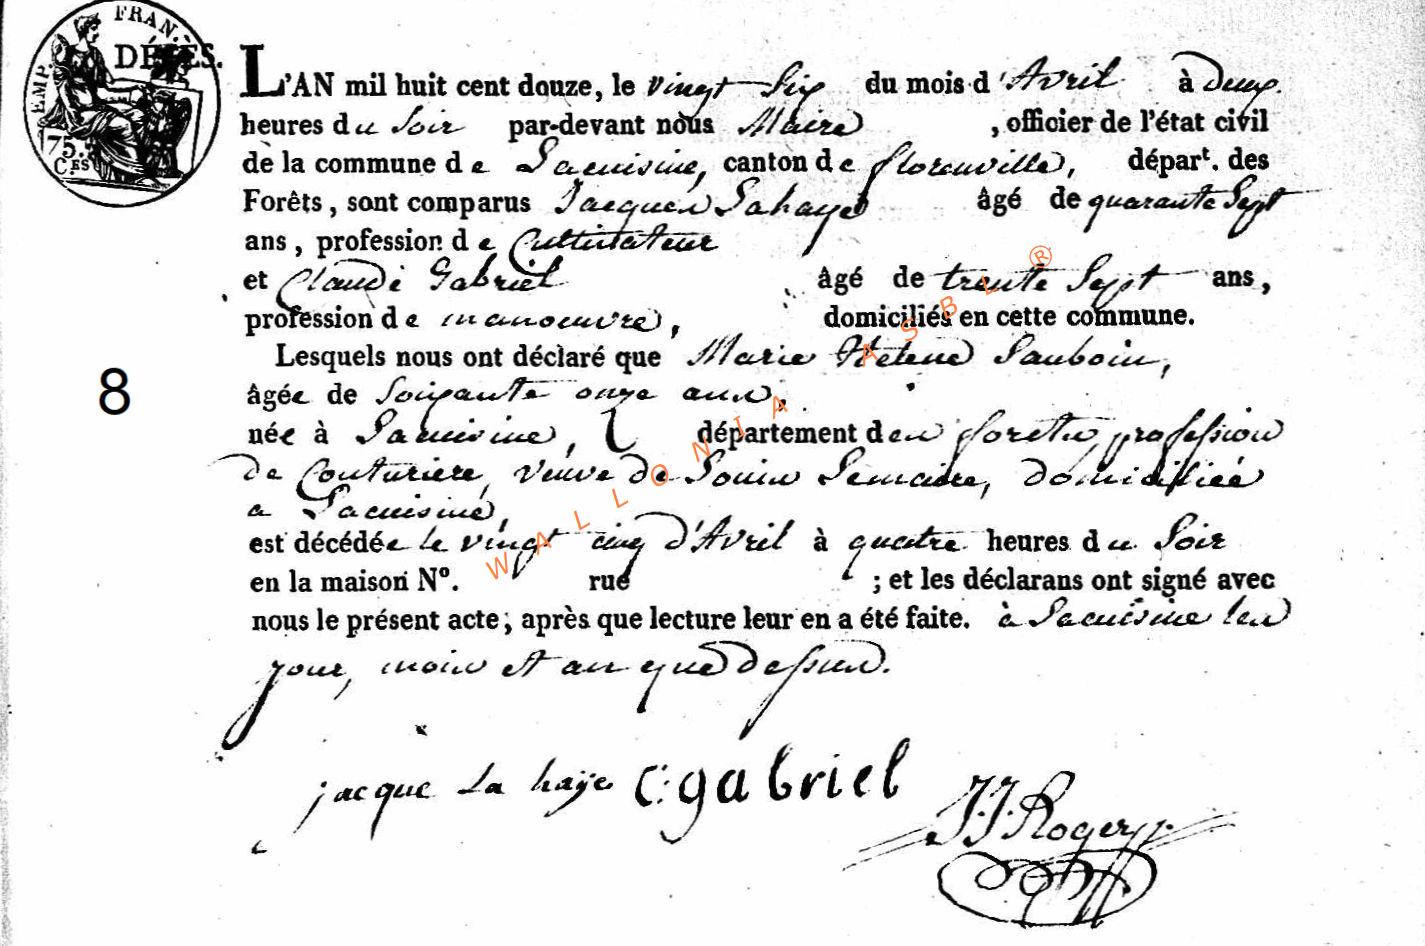 EMP. FRAN.
75.
C.ES
DÉCÈS.
L'AN mil huit cent douze, le vingt Six du mois d'Avril à deux
heures du Soir par-devant nous Maire , officier de l'état civil
de la commune de Lacuisine, canton de florenville, départ. des
Forêts, sont comparus Jacques Lahaye âgé de quarante Sept
ans, profession de Cultivateur
et Claude Gabriel âgé de trente Sept ans,
profession de manoeuvre, domiciliés en cette commune.
Lesquels nous ont déclaré que Marie Helene Jauboin,
âgée de Soixante onze ans,
née à Lacuisine, département des forets, profession
de Couturiere, veuve de Louis Lemaire, domiciliée
a Lacuisine,
est décédée le vingt cinq d'Avril à quatre heures du Soir
en la maison N°. rue ; et les déclarans ont signé avec
nous le présent acte, après que lecture leur en a été faite. à Lacuisine les
jour, mois et an que dessus.
jacque La haÿe C: gabriel
J J Roger
8
WALLONIA ASBL ®